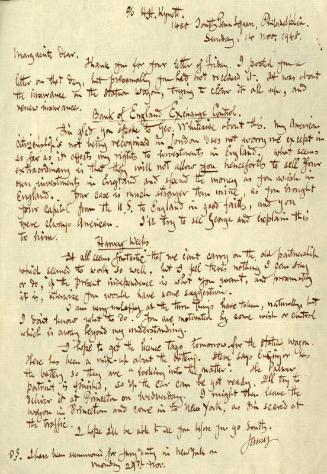 % H.H. Kynett.
1420 South Penn Square, Philadelphia.
Sunday, 14 Nov. 1948.
Margaret dear.
Thank you for your letter of Friday. I posted you a
letter on that day, but presumably you had not received it. It was about
the insurance on the station wagon, trying to clear it all up, and
renew insurance.
Bank of England Exchange Control.
I'm glad you spoke to Geo. Whitmore about this. My American
citizenship's not being recognised in London does not worry me except in
so far as it affects my rights to investments in England. What seems
extraordinary is that they will not allow you henceforth to sell your
own investments in England and spend the money as you wish in
England. Your case is much stronger than mine, as you brought
your capital from the U.S. to England in good faith, and you
were always American. I'll try to see George and explain this
to him.
It all seems fruitless that we can't carry on the old partnership
which seemed to work so well, but I feel there's nothing I can say
or do, if the present independence is what you want, and presumably
it is, otherwise you would have some suggestion.
I am very unhappy at the turn things have taken, naturally, but
I don't know what to do. You are motivated by some wish or control
which is away beyond my understanding.
I hope to get the licence tags tomorrow for the station wagon.
There has been a mix-up about the battery.
the battery so they are "looking into the matter". The Palmer
portrait is finished, so if the car can be got ready, I'll try to
deliver it at Princeton on Wednesday. I might then leave the
wagon in Princeton and come in to New York, as I'm scared of
the traffic.
I hope I'll be able to see you before you go South.
James
P.S. I have been summoned for jury duty in New York on
Monday 29th Nov.